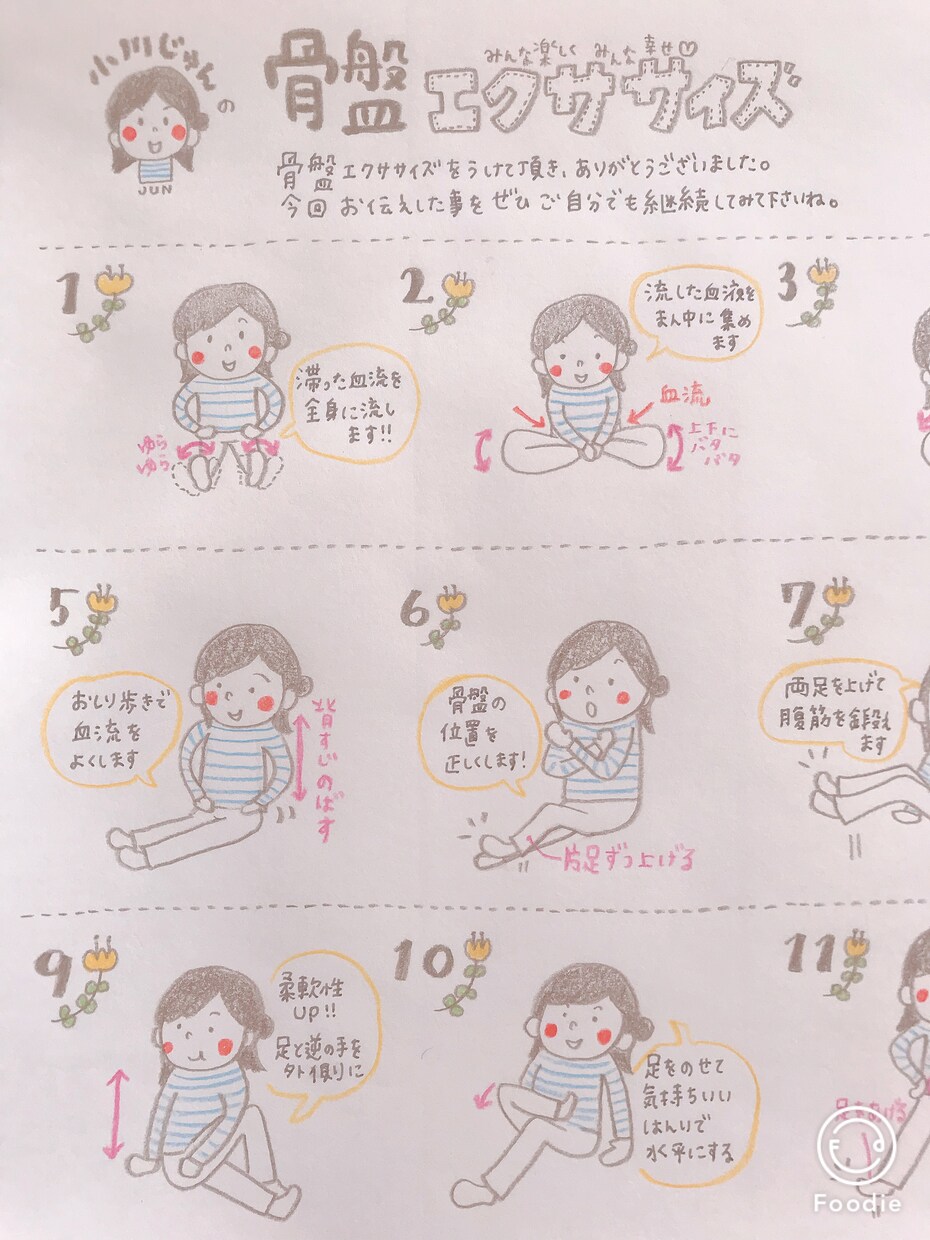 小川じゅんの
JUN
みんな楽しく みんな幸せ♡
骨盤エクササイズ
骨盤エクササイズをうけて頂き、ありがとうございました。
今回 お伝えした事を ぜひ ご自分でも継続してみて下さいね。
1
滞った血流を
全身に流し
ます!!
ゆら
ゆら
2
流した血液を
まん中に集め
ます
血流
上下に
バタ
バタ
3
5
おしり歩きで
血流を
よくします
背すじのばす
6
骨盤の
位置を
正しくします!
片足ずつ上げる
7
両足を上げて
腹筋を鍛え
ます
9
柔軟性
UP!!
足と逆の手を
外側に
10
足をのせて
気持ちいい
はんいで
水平にする
11
足をあげる
Foodie